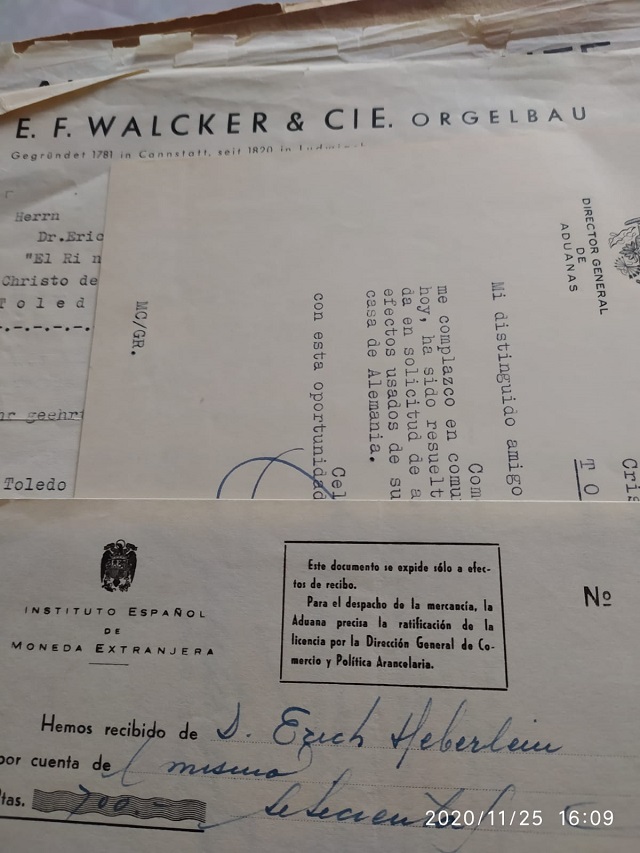 E. F. WALCKER & CIE. ORGELBAU
Gegründet 1781 in Cannstatt, seit 1820 in
Herrn
Dr.Eric
"El Ri n
Christo de
T o l e d
-.-.-.-.-.
hr geehrt
Toledo
DIRECTOR GENERAL
DE
ADUANAS
Cris
T O
Mi distinguido amigo
Com
me complazco en comu
hoy, ha sido resuelt
da en solicitud de a
efectos usados de su
casa de Alemania.
Cel
con esta oportunidad
MC/GR.
INSTITUTO ESPAÑOL
DE
MONEDA EXTRANJERA
Este documento se expide sólo a efec-
tos de recibo.
Para el despacho de la mercancía, la
Aduana precisa la ratificación de la
licencia por la Dirección General de Co-
mercio y Política Arancelaria.
Nº
Hemos recibido de D. Erich Heberlein
por cuenta de mismo
tas. 700.-
2020/11/25 16:09